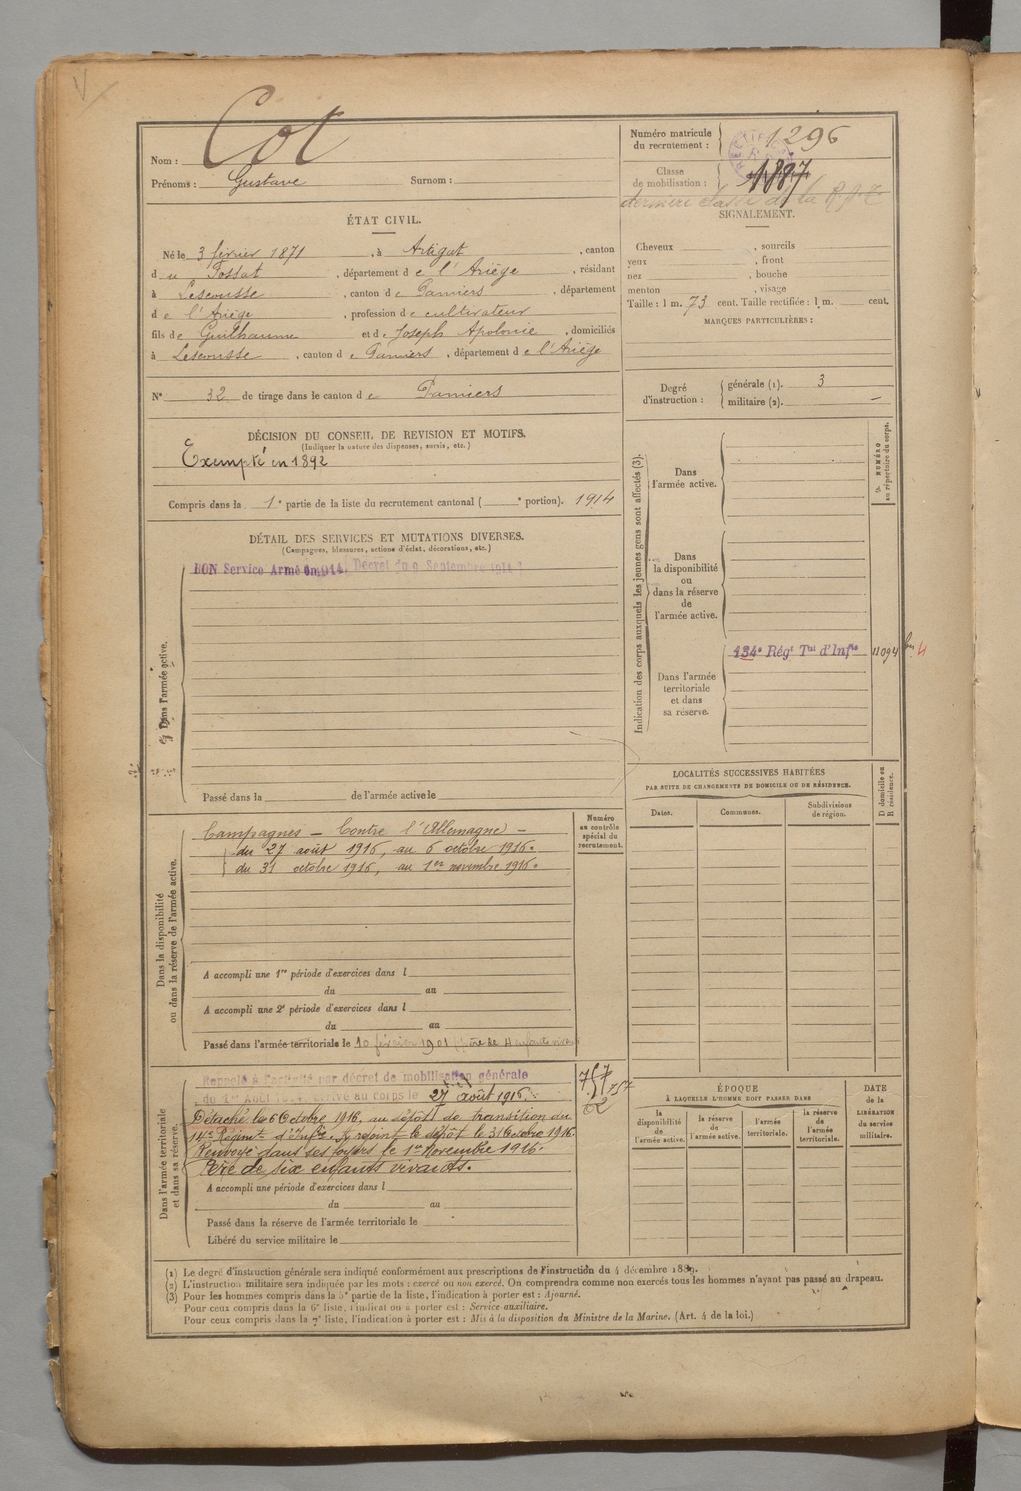 Cot
Nom :
Prénoms : Gustave Surnom :
Numéro matricule du recrutement : 1296
Classe de mobilisation : 1887
dernière classe de la R.A.T.
ÉTAT CIVIL.
Né le 3 février 1871, à Artigat, canton
d u Fossat, département d e l'Ariège, résidant
à Lescousse, canton d e Pamiers, département
d e l'Ariège, profession d e cultivateur
fils d e Guilhaume et d e Joseph Apolonie, domiciliés
à Lescousse, canton d e Pamiers, département d e l'Ariège
N° 32 de tirage dans le canton d e Pamiers
SIGNALEMENT.
Cheveux , sourcils
yeux , front
nez , bouche
menton , visage
Taille : 1 m. 73 cent. Taille rectifiée : 1 m. cent.
MARQUES PARTICULIÈRES :
Degré d'instruction : générale (1). 3
militaire (2). —
DÉCISION DU CONSEIL DE REVISION ET MOTIFS.
(Indiquer la nature des dispenses, sursis, etc.)
Exempté en 1892
Compris dans la 1e partie de la liste du recrutement cantonal ( e portion). 1914
DÉTAIL DES SERVICES ET MUTATIONS DIVERSES.
(Campagnes, blessures, actions d'éclat, décorations, etc.)
BON Service Armé en 1914 (Décret du 9 Septembre 1914)
Dans l'armée active.
Passé dans la de l'armée active le
Indication des corps auxquels les jeunes gens sont affectés (3).
NUMÉRO au répertoire du corps.
Dans l'armée active.
Dans la disponibilité ou dans la réserve de l'armée active.
Dans l'armée territoriale et dans sa réserve.
134e Régt Tal d'Infie 11094
LOCALITÉS SUCCESSIVES HABITÉES
PAR SUITE DE CHANGEMENTS DE DOMICILE OU DE RÉSIDENCE.
Dates. Communes. Subdivisions de région. D domicile ou R résidence.
Dans la disponibilité ou dans la réserve de l'armée active.
Numéro au contrôle spécial du recrutement.
Campagnes — Contre l'Allemagne —
du 27 août 1916, au 6 octobre 1916.
du 31 octobre 1916, au 1er novembre 1916.
A accompli une 1re période d'exercices dans l
du au
A accompli une 2e période d'exercices dans l
du au
Passé dans l'armée territoriale le 10 février 1901 (père de 4 enfants vivants
Dans l'armée territoriale et dans sa réserve.
Rappelé à l'activité par décret de mobilisation générale
du 1er Août 1914. Arrivé au corps le 27 août 1916.
757
Détaché le 6 Octobre 1916, au dépôt de transition du
14e Régiment d'Infie. A rejoint le dépôt le 31 Octobre 1916.
Renvoyé dans ses foyers le 1er Novembre 1916.
Père de six enfants vivants.
A accompli une période d'exercices dans l
du au
Passé dans la réserve de l'armée territoriale le
Libéré du service militaire le
ÉPOQUE
À LAQUELLE L'HOMME DOIT PASSER DANS
la disponibilité de l'armée active. la réserve de l'armée active. l'armée territoriale. la réserve de l'armée territoriale.
DATE de la LIBÉRATION du service militaire.
(1) Le degré d'instruction générale sera indiqué conformément aux prescriptions de l'instruction du 4 décembre 1889.
(2) L'instruction militaire sera indiquée par les mots : exercé ou non exercé. On comprendra comme non exercés tous les hommes n'ayant pas passé au drapeau.
(3) Pour les hommes compris dans la 5e partie de la liste, l'indication à porter est : Ajourné.
Pour ceux compris dans la 6e liste, l'indication à porter est : Service auxiliaire.
Pour ceux compris dans la 7e liste, l'indication à porter est : Mis à la disposition du Ministre de la Marine. (Art. 4 de la loi.)